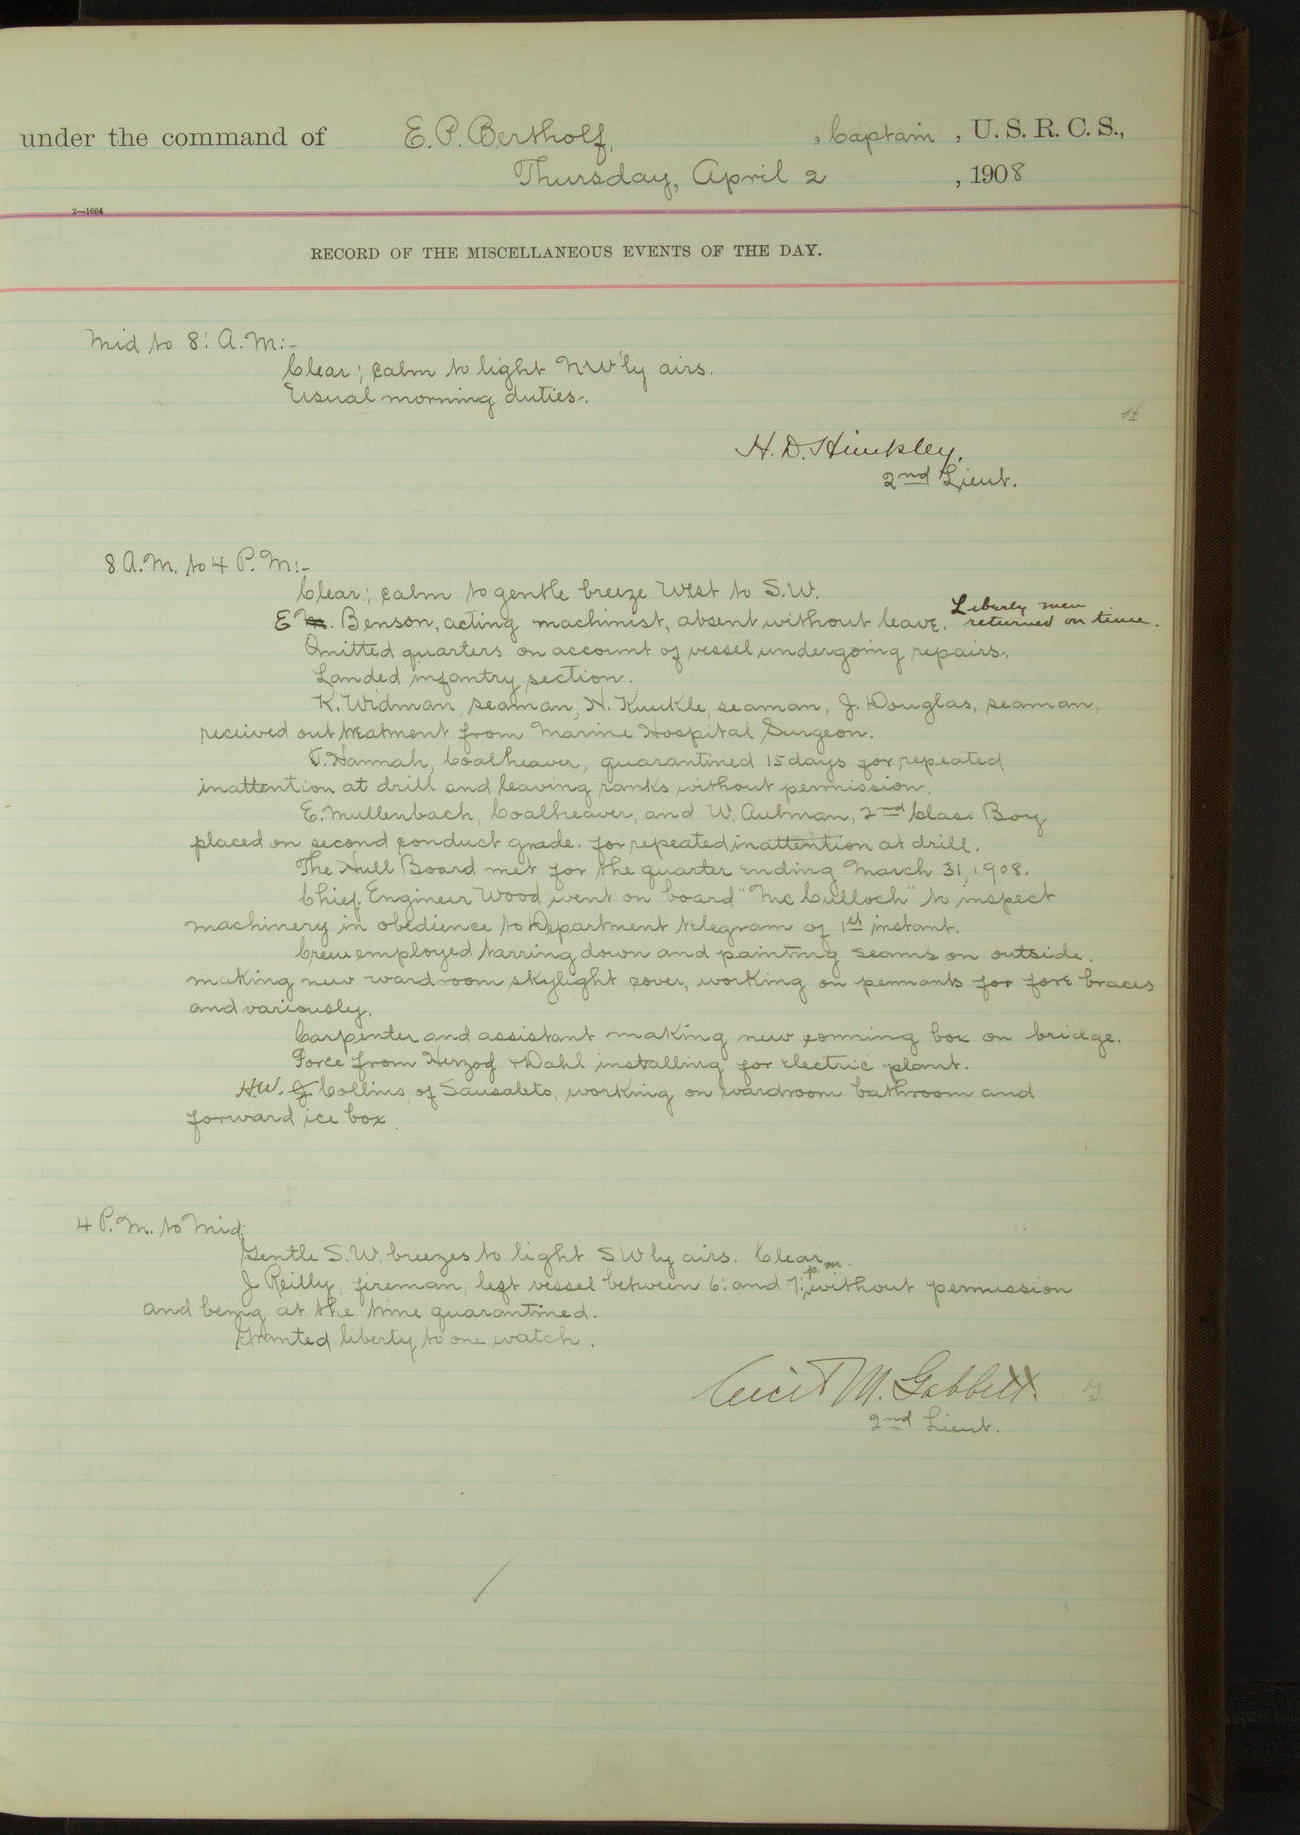 under the command of E. P. Bertholf, , Captain , U. S. R. C. S.,
Thursday, April 2 , 1908
2—1664
RECORD OF THE MISCELLANEOUS EVENTS OF THE DAY.
Mid to 8: A.M:-
Clear; calm to light NW'ly airs.
Usual morning duties.
H. D. Hinckley,
2nd Lieut.
8 A.M. to 4 P.M:-
Clear; calm to gentle breeze West to S.W.
E. Benson, acting machinist, absent without leave. Liberty men returned on time.
Omitted quarters on account of vessel undergoing repairs.
Landed infantry section.
K. Widman, seaman, N. Kunkle, seaman, J. Douglas, seaman,
received out treatment from Marine Hospital Surgeon.
T. Hannah, Coalheaver, quarantined 15 days for repeated
inattention at drill and leaving ranks without permission.
E. Mullenbach, Coalheaver, and W. Autman, 2nd Class Boy
placed on second conduct grade. for repeated inattention at drill.
The Hull Board met for the quarter ending March 31, 1908.
Chief Engineer Wood went on board "McCulloch" to inspect
machinery in obedience to Department telegram of 1st instant.
Crew employed tarring down and painting seams on outside.
making new wardroom skylight cover, working on pennants for fore braces
and variously.
Carpenter and assistant making new conning box on bridge.
Force from Herzog & Dahl installing for electric plant.
H.W. Collins, of Sausalito, working on wardroom bathroom and
forward ice box.
4 P.M. to Mid:
Gentle S.W. breezes to light SWly airs. Clear.
J Reilly, fireman, left vessel between 6: and 7: p.m. without permission
and being at the time quarantined.
Granted liberty to one watch.
Cecil M. Gabbett.
2nd Lieut.